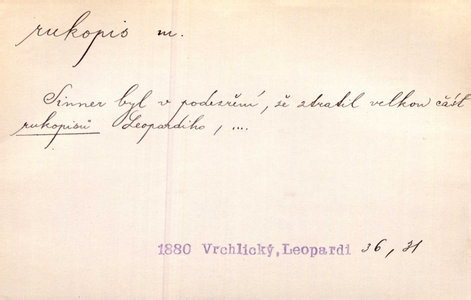 rukopis m.
Sinner byl v podezrění, že ztratil velkou část
rukopisů Leopardiho, ....
1880 Vrchlický, Leopardi 36, 31